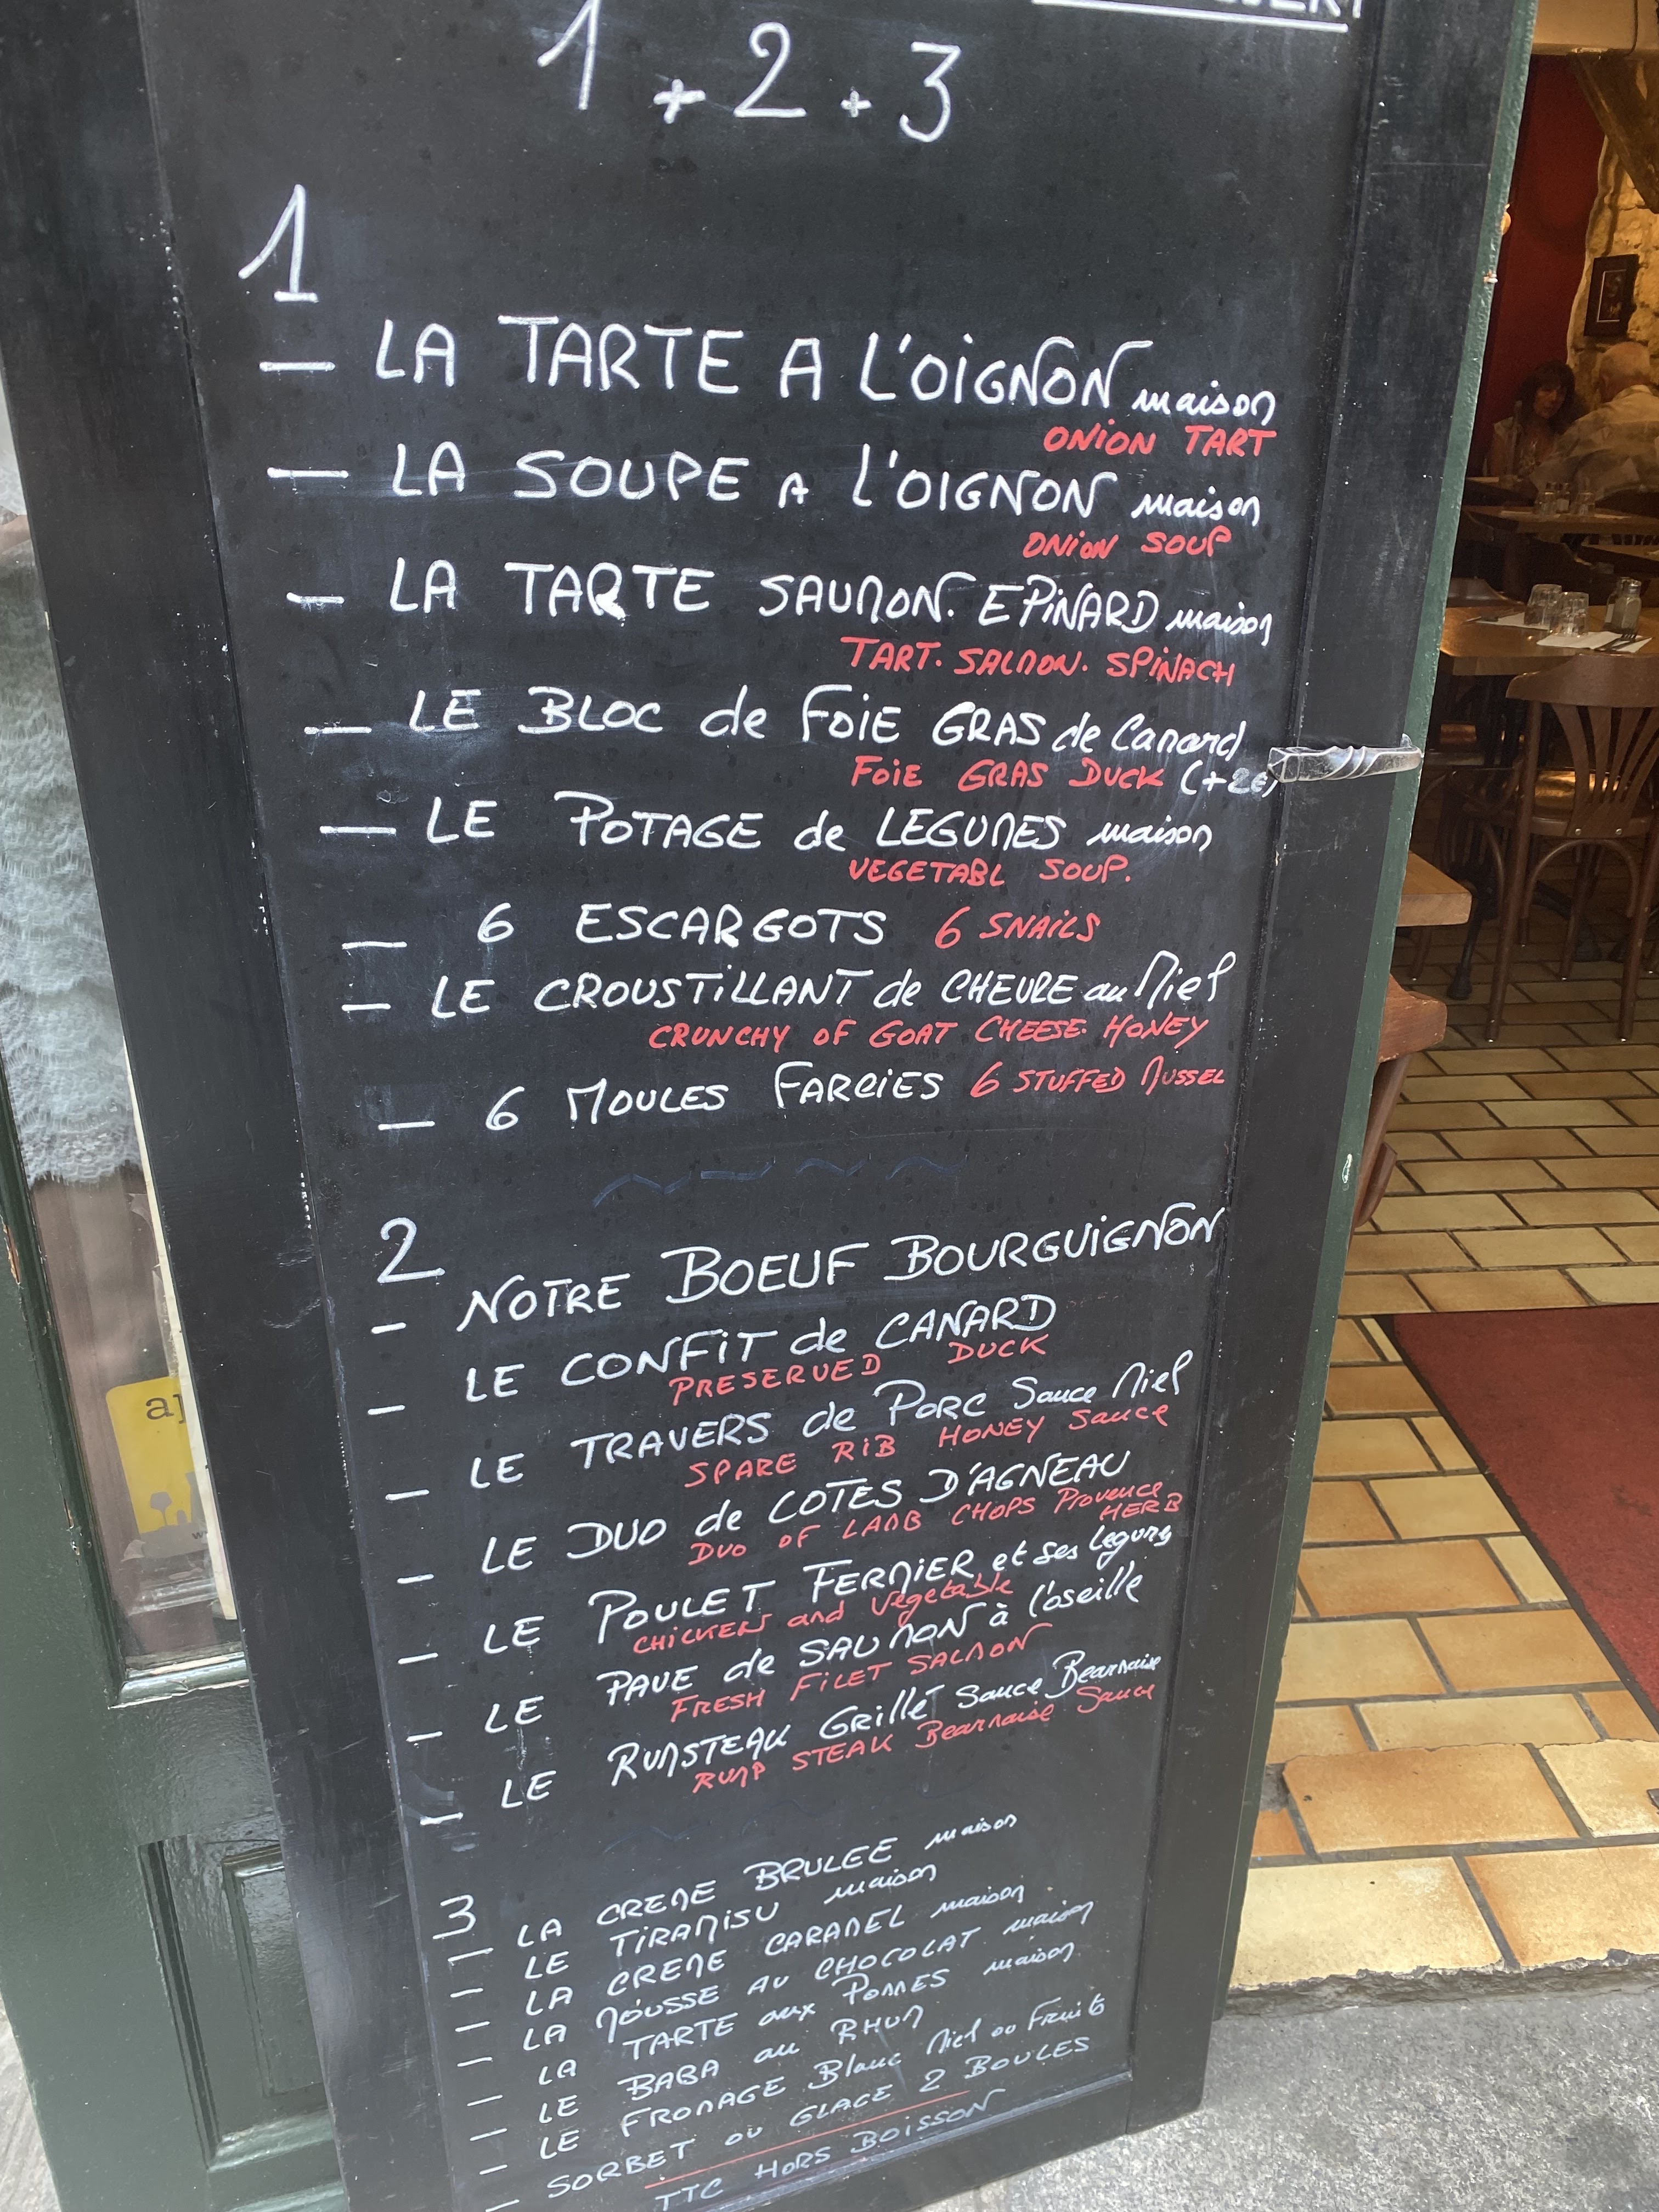 1 + 2 + 3
1
— LA TARTE A L'OIGNON maison
ONION TART
— LA SOUPE A L'OIGNON maison
ONION SOUP
— LA TARTE SAUMON. EPINARD maison
TART. SALMON. SPINACH
— LE BLOC de FOIE GRAS de Canard
FOIE GRAS DUCK (+2€)
— LE POTAGE de LEGUMES maison
VEGETABL SOUP.
— 6 ESCARGOTS 6 SNAILS
— LE CROUSTILLANT de CHEVRE au Miel
CRUNCHY OF GOAT CHEESE HONEY
— 6 MOULES FARCIES 6 STUFFED MUSSEL
2
— NOTRE BOEUF BOURGUIGNON
— LE CONFIT de CANARD
PRESERVED DUCK
— LE TRAVERS de PORC Sauce Miel
SPARE RIB HONEY Sauce
— LE DUO de COTES D'AGNEAU
DUO OF LAMB CHOPS Provence
HERB
— LE POULET FERMIER et ses legums
CHICKEN and Vegetable
— LE PAVE de SAUMON à l'oseille
FRESH FILET SALMON
— LE RUMSTEAK Grillé Sauce Bearnaise
RUMP STEAK Bearnaise Sauce
3
— LA CREME BRULEE maison
— LE TIRAMISU maison
— LA CREME CARAMEL maison
— LA MOUSSE AU CHOCOLAT maison
— LA TARTE aux POMMES maison
— LE BABA au RHUM
— LE FROMAGE Blanc Miel ou Fruits
— SORBET ou GLACE 2 BOULES
TTC HORS BOISSON